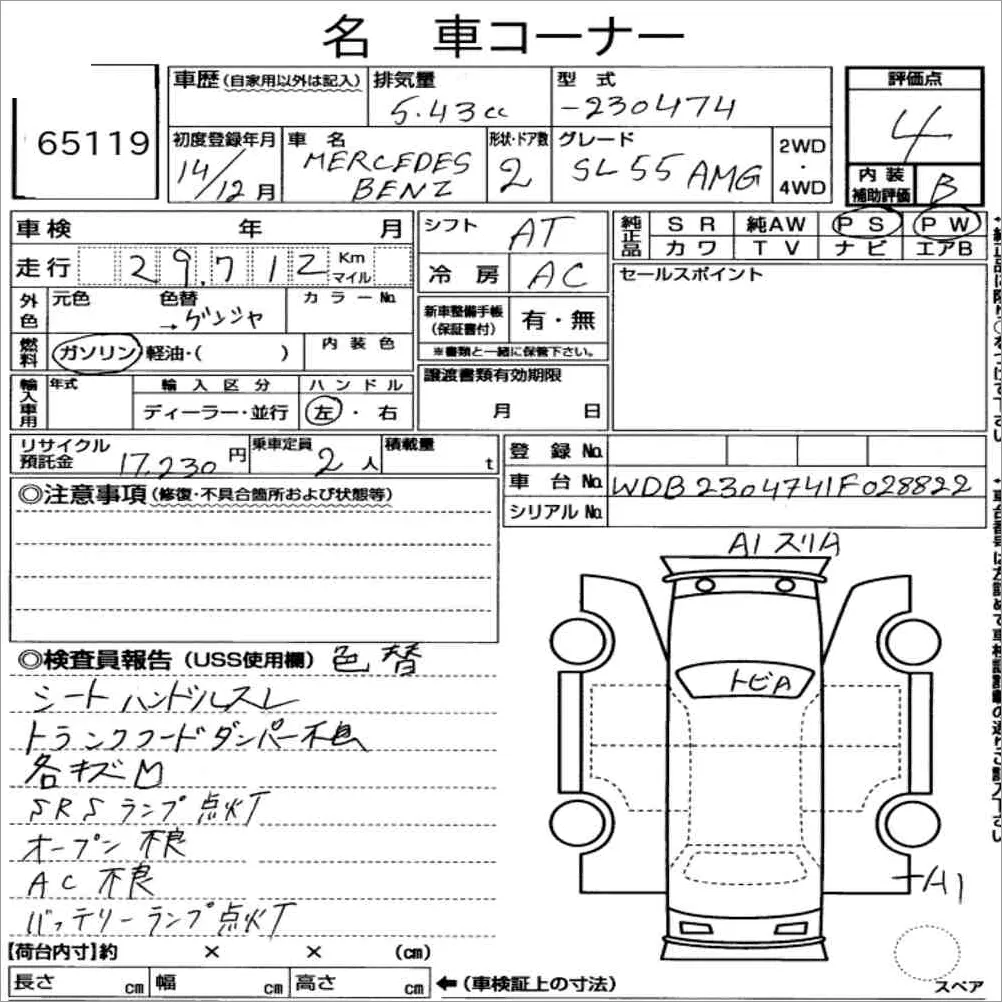 名 車コーナー
65119
車歴(自家用以外は記入)
排気量
5.43cc
型 式
-230474
評価点
4
初度登録年月
14/12月
車 名
MERCEDES
BENZ
形状・ドア数
2
グレード
SL55 AMG
2WD
・
4WD
内 装
補助評価
B
車検 年 月
走行 29.712 Km
マイル
シフト
AT
冷 房
AC
純正品
S R 純AW P S P W
カ ワ T V ナ ビ エアB
セールスポイント
外色
元色
色替
→ゲンジャ
カ ラ ー No.
新車整備手帳
(保証書付)
有・無
※書類と一緒に保管下さい。
燃料
ガソリン 軽油・( )
内 装 色
譲渡書類有効期限
月 日
輸入車用
年式
輸 入 区 分
ディーラー・並行
ハ ン ド ル
左 ・ 右
リサイクル
預託金
17,230円
乗車定員
2人
積載量
t
登 録 No.
車 台 No. WDB2304741F028822
シリアル No.
◎注意事項(修復・不具合箇所および状態等)
A1 スリA
トビA
A1
◎検査員報告(USS使用欄) 色替
シート ハンドルスレ
トランクフードダンパー不良
各キズM
SRSランプ点灯
オープン不良
AC不良
バッテリーランプ点灯
【荷台内寸】約 × × (cm)
長さ cm 幅 cm 高さ cm ←(車検証上の寸法)
スペア